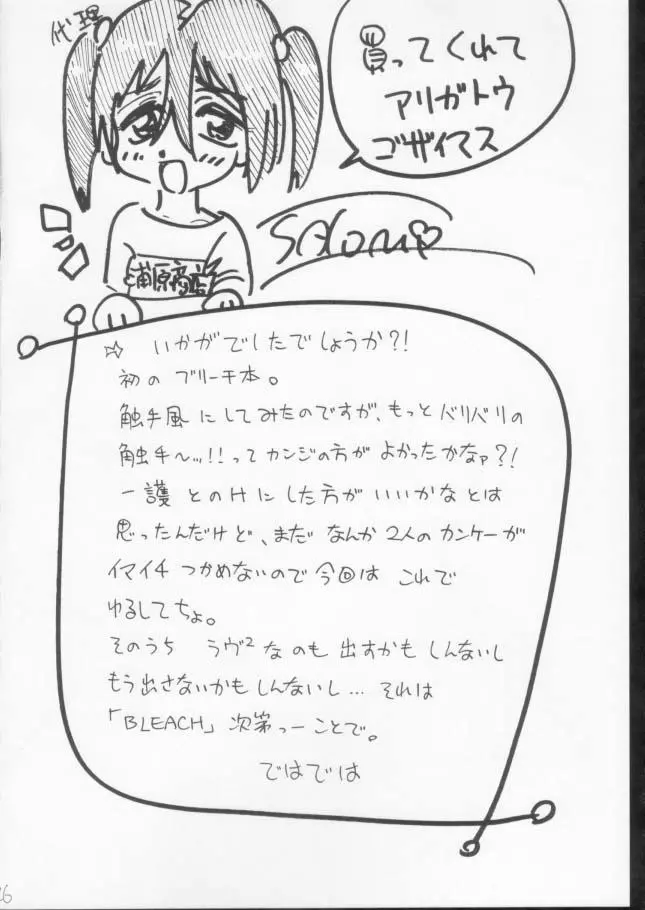 代理
買ってくれて
アリガトウ
ゴザイマス
浦原商店
☆ いかがでしたでしょうか?!
初の ブリーチ本。
触手風 にしてみたのですが、もっとバリバリの
触手〜ッ!!ってカンジの方が よかったかなァ?!
一護 とのHにした方が いいかな とは
思ったんだけど、まだ なんか 2人のカンケーが
イマイチ つかめないので今回は これで
ゆるしてちょ。
そのうち ラヴ²なのも 出すかも しんないし
もう出さないかも しんないし… それは
「BLEACH」次第っーことで。
ではでは
26